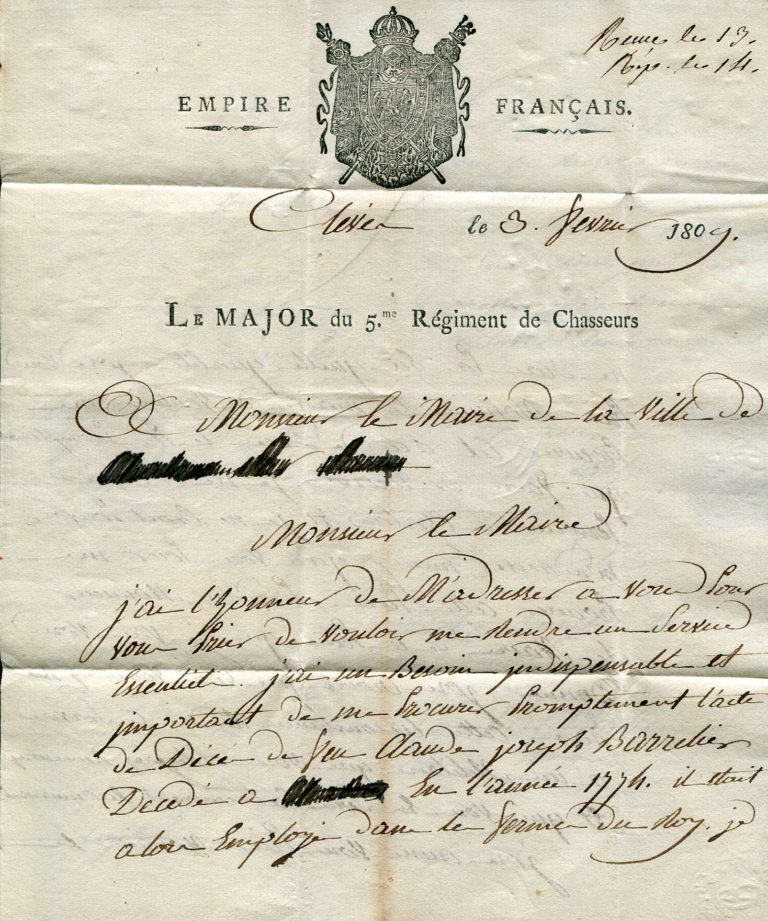 Reçue le 13.
Rép. le 14.
EMPIRE FRANÇAIS.
Clèves le 3. fevrier 1809.
LE MAJOR du 5.me Régiment de Chasseurs
A Monsieur le Maire de la Ville de
Monsieur le Maire
j'ai l'honneur de M'adresser a vous Pour
vous Prier de vouloir me Rendre un Service
Essentiel. j'ai un Besoin jndispensable et
jmportant de me Procurer Promptement l'acte
de Décé de feu Claude joseph Barrelier
Décedé a En l'année 1774. il etoit
alors Employé dans les fermes du Roy. je